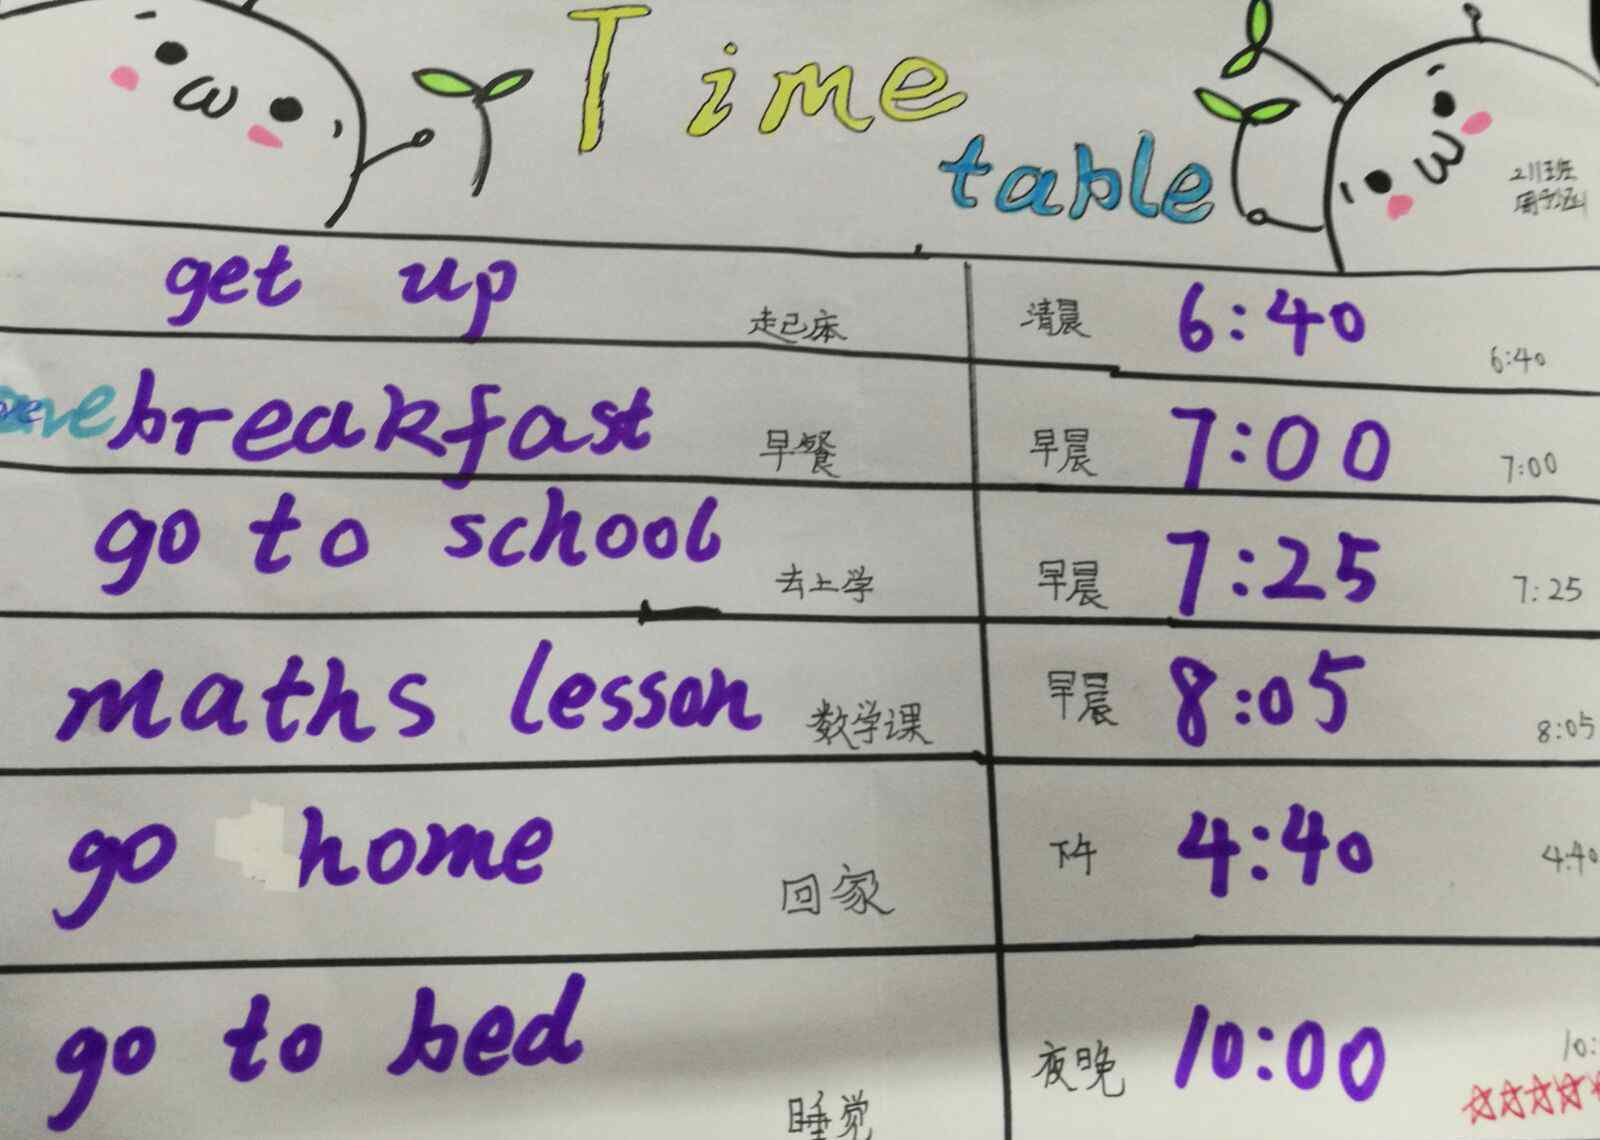 Time
table
211班
周子涵
get up 起床 清晨 6:40 6:40
have breakfast 早餐 早晨 7:00 7:00
go to school 去上学 早晨 7:25 7:25
maths lesson 数学课 早晨 8:05 8:05
go home 回家 下午 4:40 4:40
go to bed 睡觉 夜晚 10:00 10: